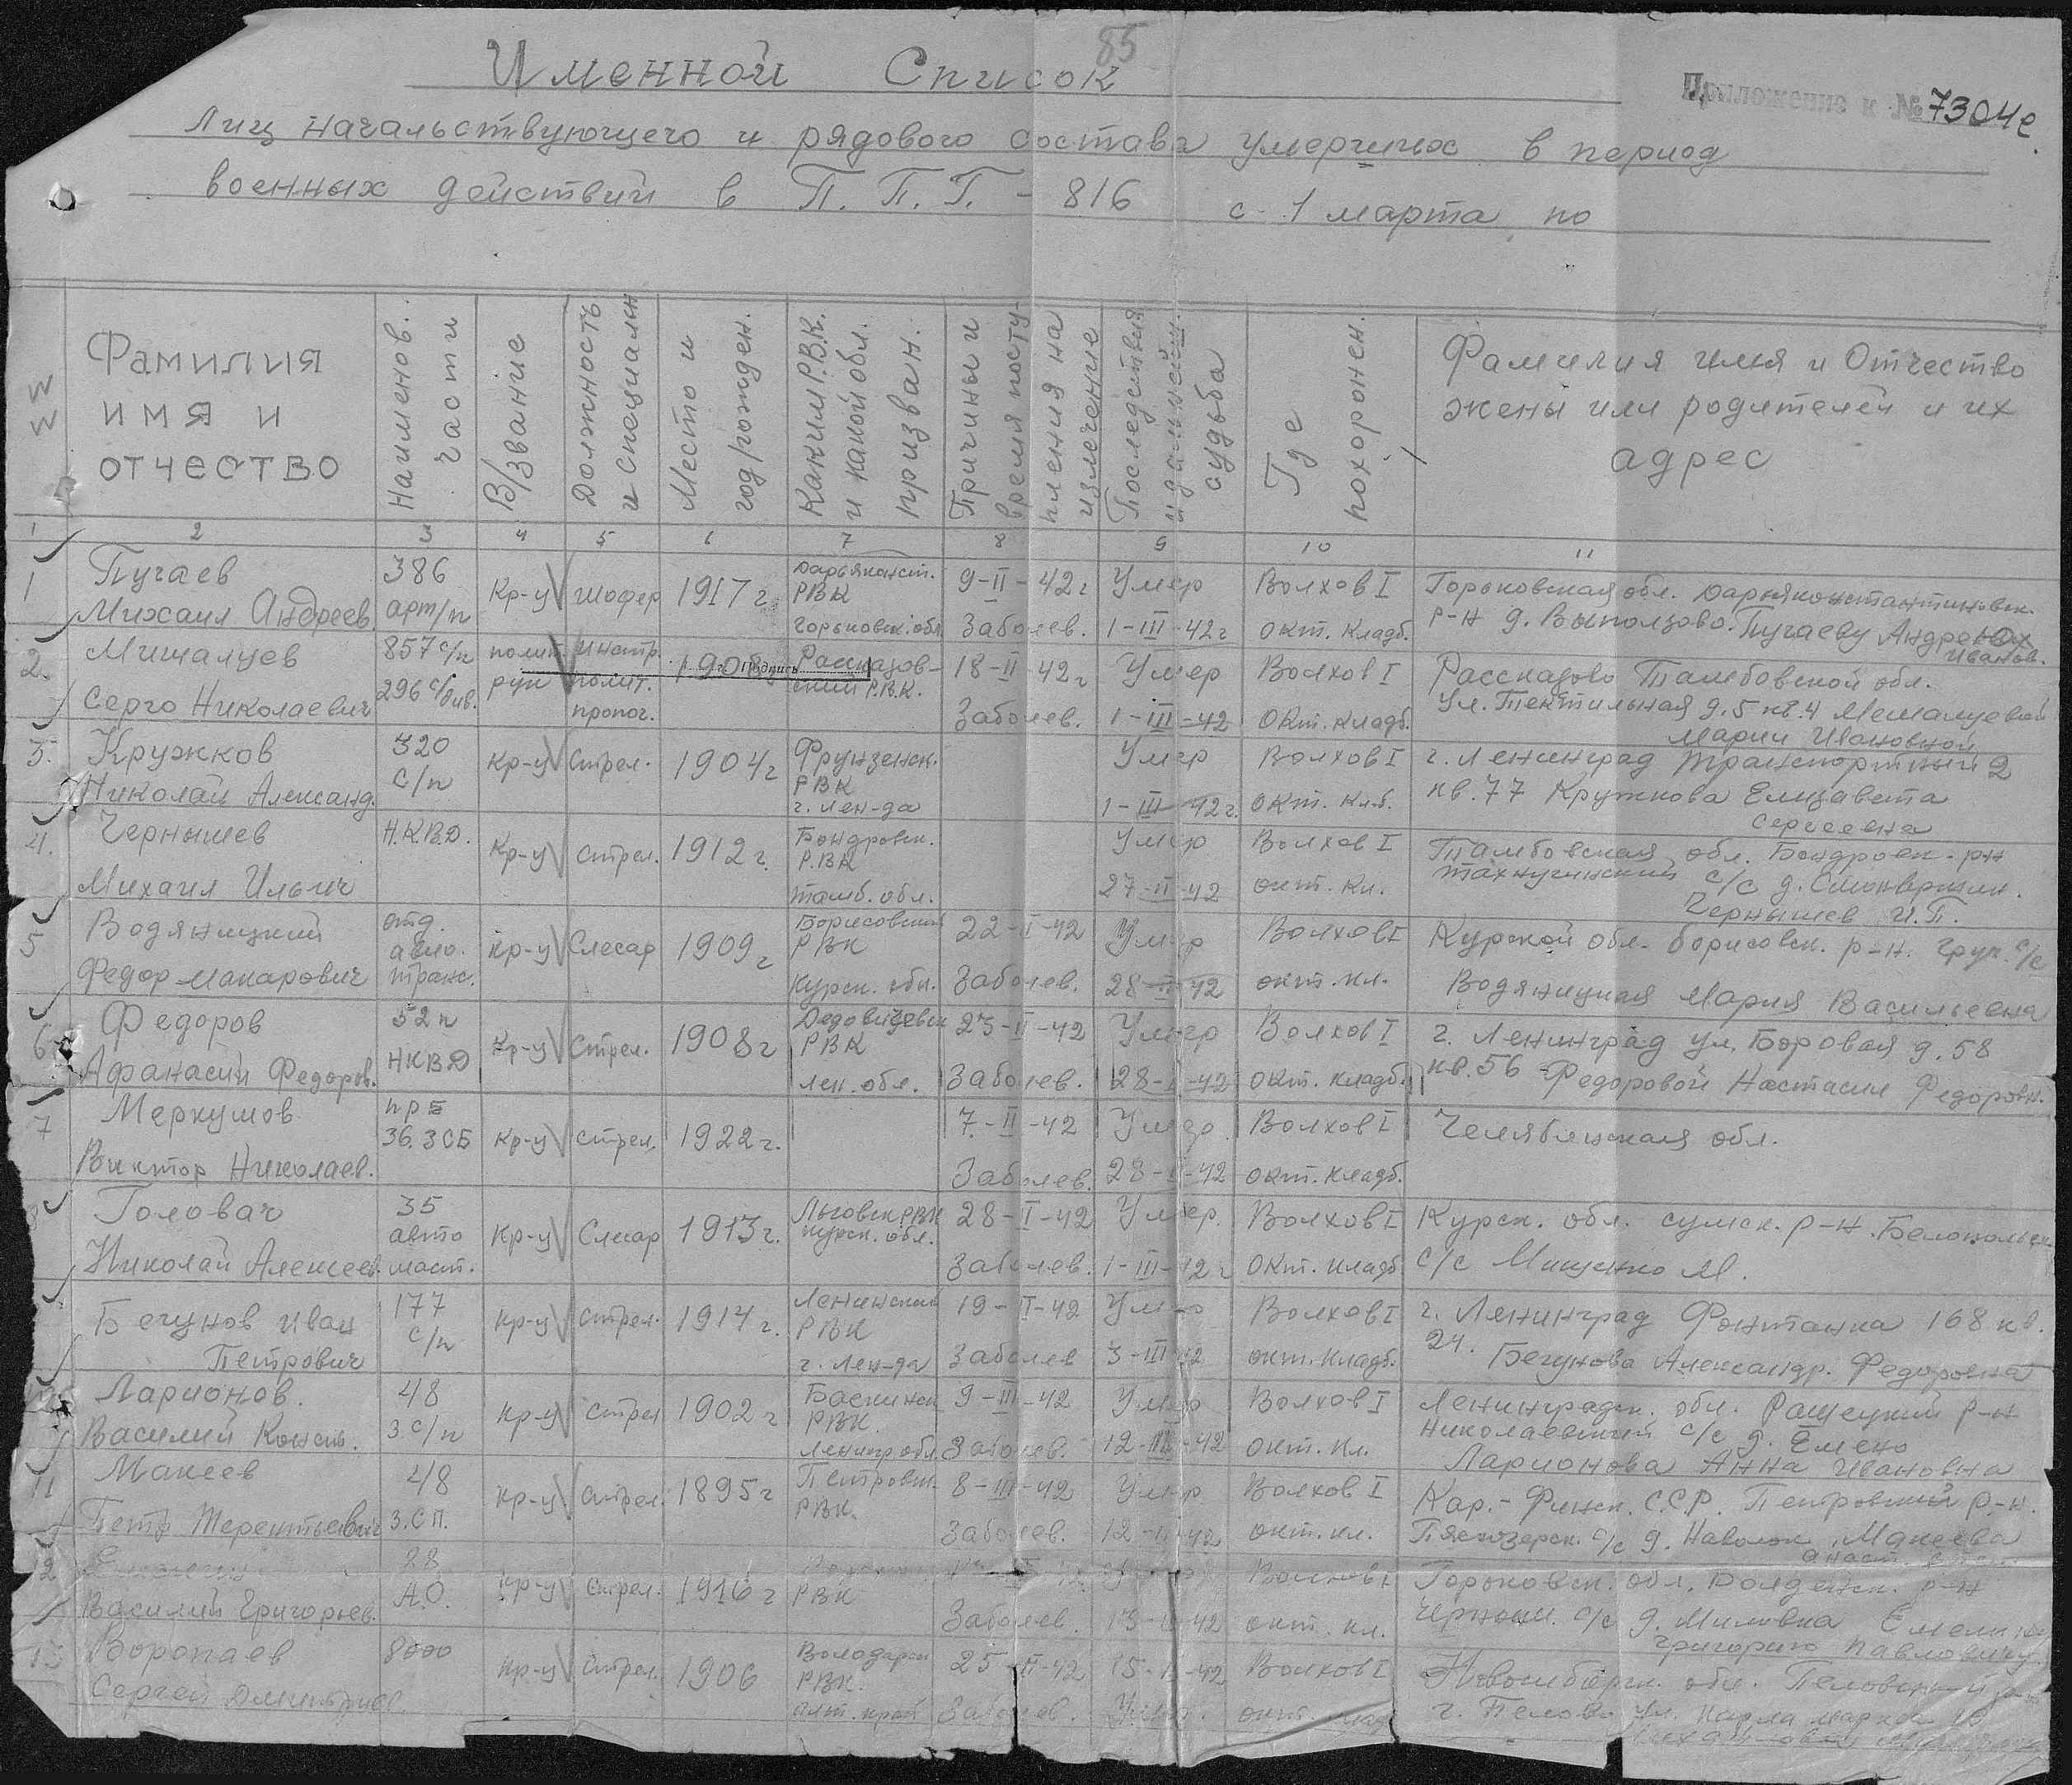 85
Именной Список
Приложение к №7304с
Лиц начальствующего и рядового состава умерших в период
военных действий в П.П.Г. - 816 с 1 марта по
Фамилия имя и отчество
Наименов. части
В/звание
Должность и специальн
Место и год/рожден.
Каким Р.В.К. и какой обл. призван.
Причины и время поступления на излечение
Последствия и дальнейш. судьба
Где похоронен.
Фамилия имя и Отчество жены или родителей и их адрес
1 2 3 4 5 6 7 8 9 10 11
1 Пугаев 386 Кр-ц шофер 1917 г Дарьяконст. РВК 9-II-42 г Умер Волхов I Горьковская обл. Дарьяконстантиновск.
Михаил Андреев. арт/п Горьковск. обл. Заболев. 1-III-42 г окт. кладб. р-н д. Выползово. Пугаеву Андрею Иванов.
2. Мишалуев 857 с/п полит рук инстр. полит. пропог. 1908 г подпись Рассказовский Р.В.К. 18-II-42 г Умер Волхов I Рассказово Тамбовской обл.
Серго Николаевич 296 с/див. Заболев. 1-III-42 окт. кладб. ул. Текстильная д. 5 кв. 4 Мешалуевой
Марии Ивановной
3. Кружков 320 Кр-ц Стрел. 1904 г Фрунзенск. РВК Умер Волхов I г. Ленинград Транспортный 2
Николай Александ. с/п г. Лен-да 1-III-42 г. окт. кл. кв. 77 Кружкова Елизавета
Сергеевна
4. Чернышев Н.К.В.Д. Кр-ц стрел. 1912 г. Бондровск. Р.ВК Умер Волхов I Тамбовская обл. Бондровск. р-н
Михаил Ильич тамб. обл. 27-II-42 окт. кл. с/с д.
Чернышев И.П.
5 Водяницкий отд. авто. Кр-ц Слесар 1909 г Борисовский РВК 22-I-42 Умер Волхов I Курской обл. Борисовск. р-н. Грун. с/с
Федор Макарович транс. Курск. обл. Заболев. 28-II-42 окт. кл. Водяницкая Мария Васильевна
6 Федоров 52 п Кр-ц Стрел. 1908 г РВК 23-II-42 Умер Волхов I г. Ленинград ул. Боровая д. 58
Афанасий Федоров. НКВД Лен. обл. Заболев. 28-II-42 окт. кладб. кв. 56 Федоровой Настасии Федоровн.
7 Меркушов 36. ЗСБ Кр-ц стрел. 1922 г. 7-II-42 Умер Волхов I Челябинская обл.
Виктор Николаев. Заболев. 28-II-42 окт. кладб.
8 Головач 35 авто Кр-ц Слесар 1913 г. Льговск. РВК 28-I-42 Умер. Волхов I Курск. обл. сумск. р-н.
Николай Алексеев. маст. курск. обл. Заболев. 1-III-42 г окт. кладб. с/с Мищенко М.
Бегунов Иван 177 Кр-ц стрел. 1914 г. Ленинский РВК 19-II-42 Умер Волхов I г. Ленинград Фонтанка 168 кв.
Петрович с/п г. Лен-да Заболев 3-III-42 окт. кладб. 24. Бегунова Александр. Федоровна
Ларионов. 48 Кр-ц стрел 1902 г РВК 9-III-42 Умер Волхов I Ленинградск. обл. р-н
Василий Конст. З с/п Ленингр обл. Заболев. 12-III-42 окт. кл. Николаевский с/с д.
Ларионова Анна Ивановна
11 Макеев 48 Кр-ц стрел. 1895 г Петровск. РВК. 8-III-42 Умер Волхов I Кар.-Финск. С.С.Р. Петровский р-н.
Петр Терентьевич З.СП. Заболев. 12-III-42 окт. кл. с/с д. Наволок Макеева
12 88 Кр-ц стрел. 1916 г РВК Волхов I Горьковск. обл. р-н
Василий Григорьев. А.О. Заболев. окт. кл. с/с д.
Григорию Павловичу
13 Воропаев Кр-ц стрел. 1906 Володарск РВК. 25-II-42 Волхов I Новосибирск. обл.
Сергей алт. край Заболев. Умер. окт. г. ул. Карла Маркса